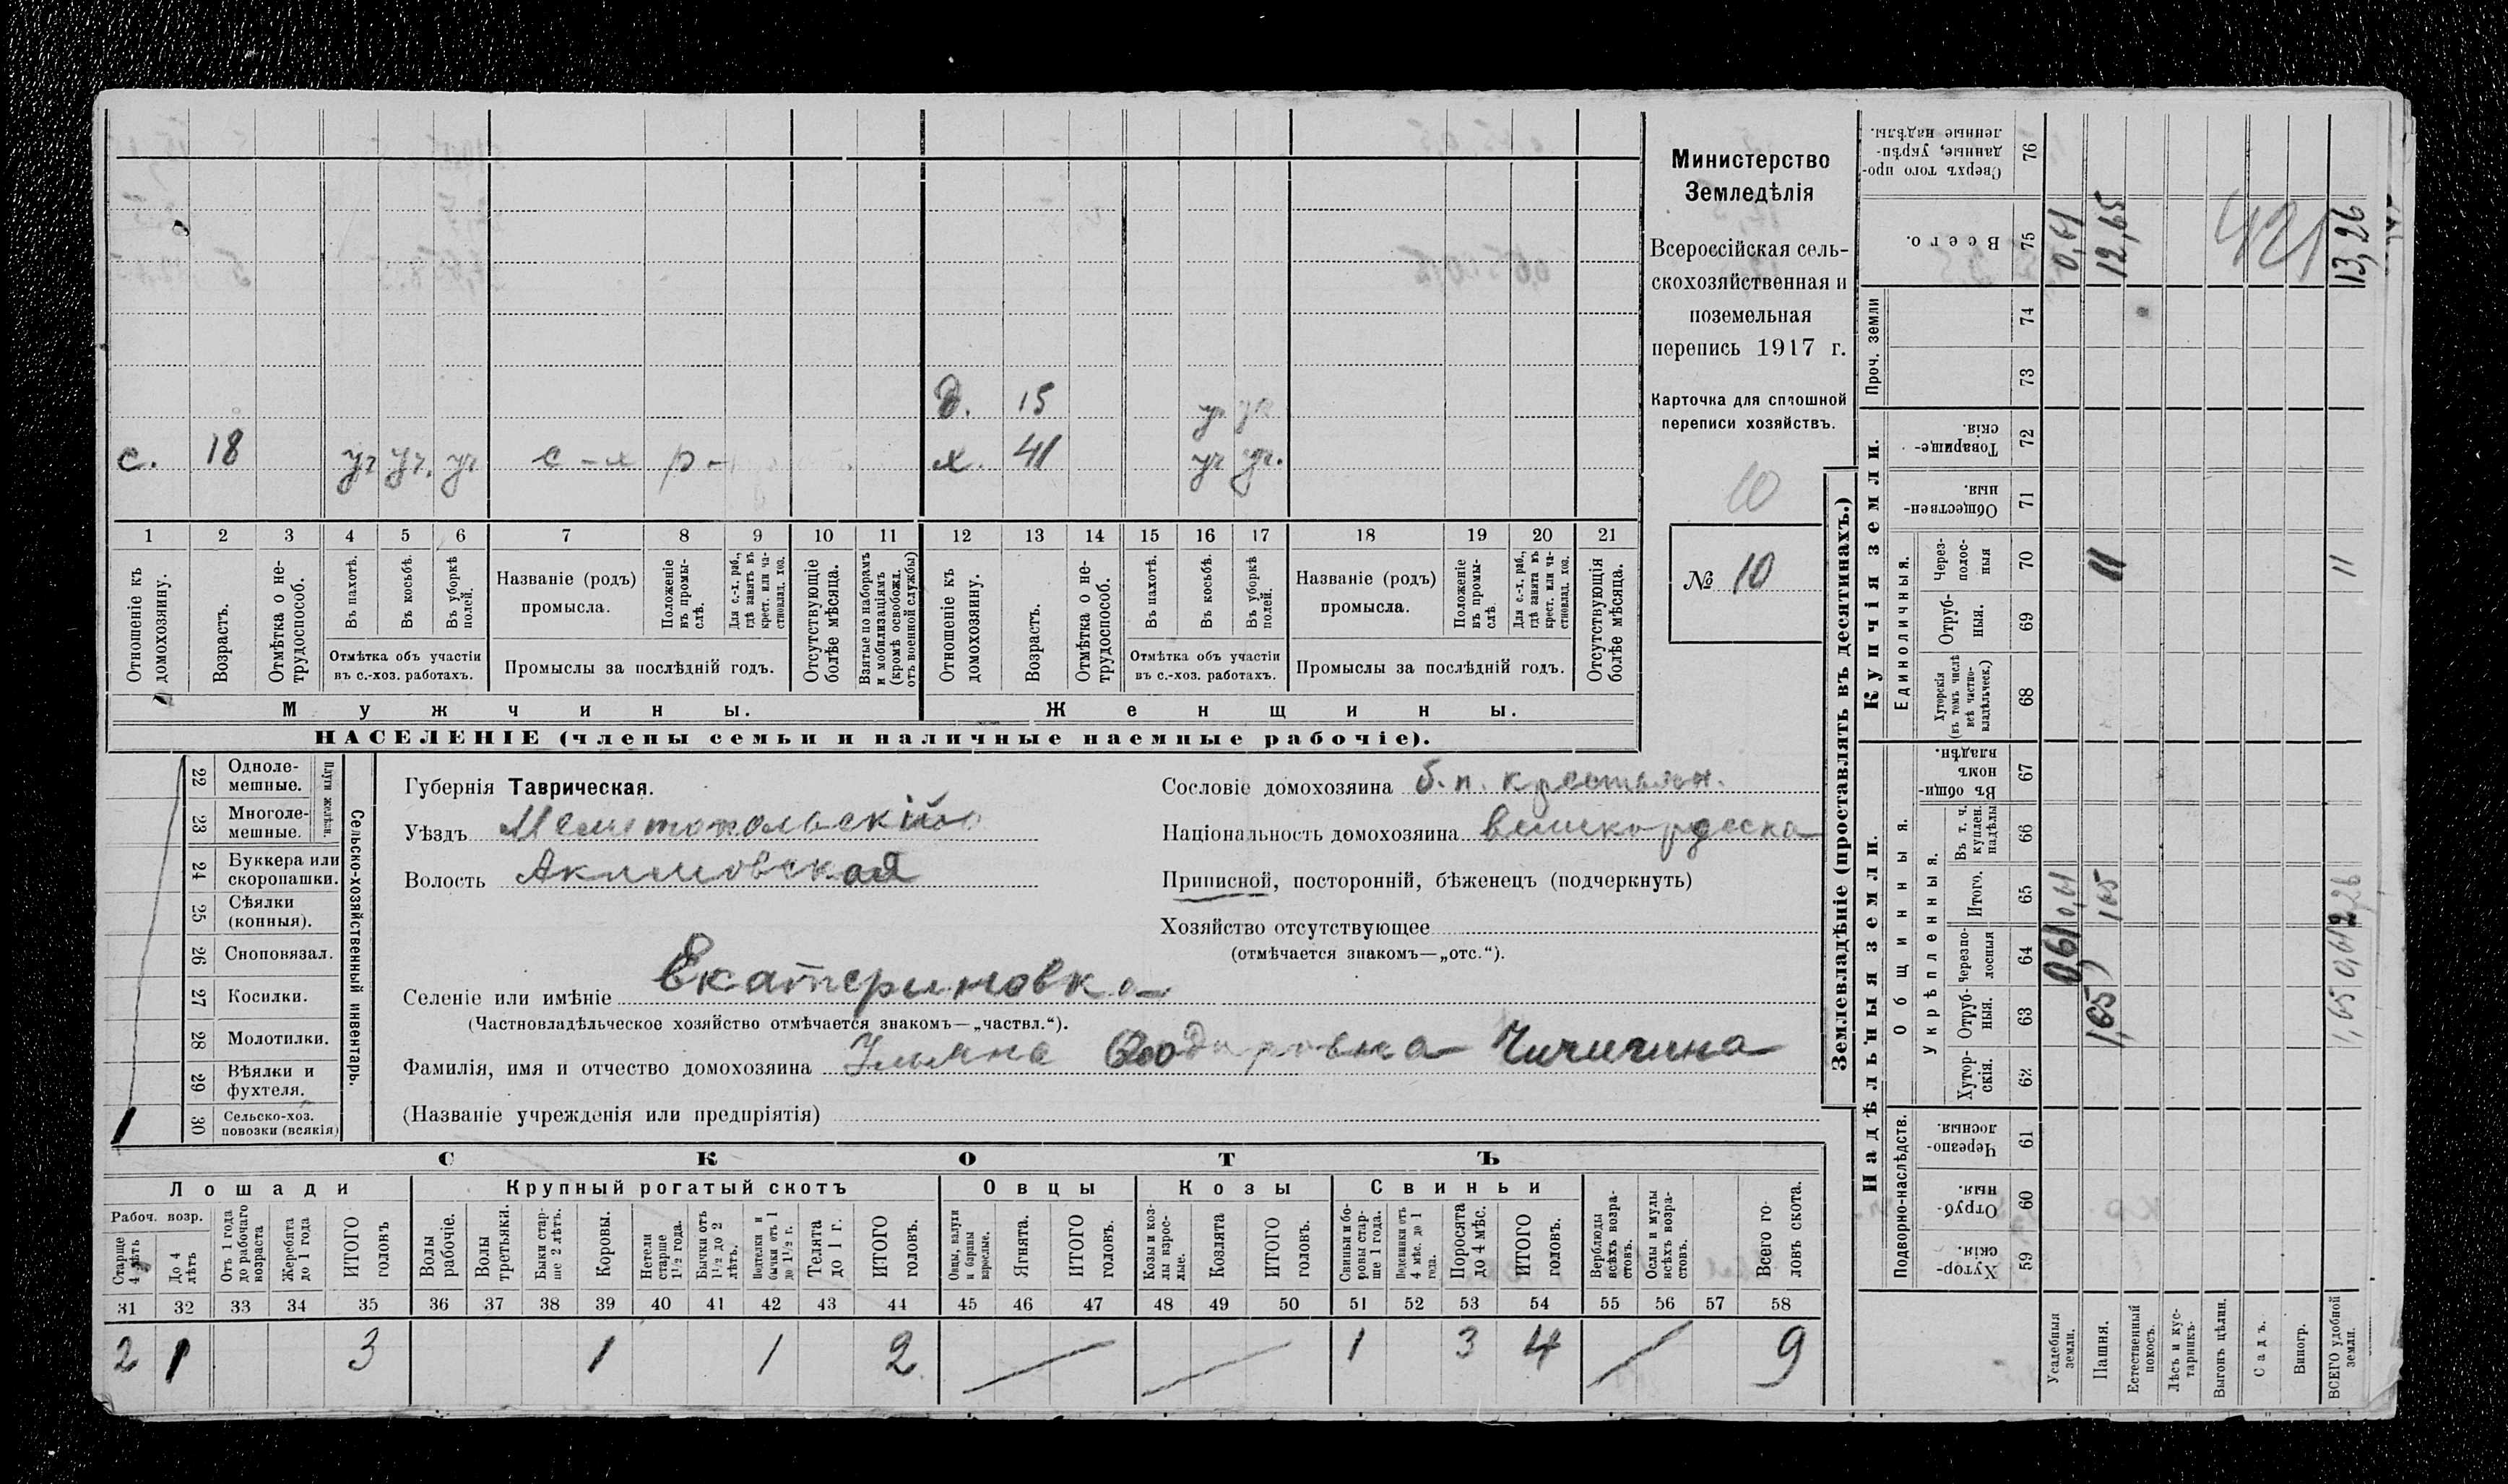 Министерство
Земледѣлія
Всероссійская сель-
скохозяйственная и
поземельная
перепись 1917 г.
Карточка для сплошной
переписи хозяйствъ.
10
№ 10
д. 15 уч уч
с. 18 уч уч. уч с-х р- х. 41 уч уч.
1 2 3 4 5 6 7 8 9 10 11 12 13 14 15 16 17 18 19 20 21
Отношеніе къ домохозяину.
Возрастъ.
Отмѣтка о не-трудоспособ.
Въ пахотѣ.
Въ косьбѣ.
Въ уборкѣ полей.
Отмѣтка объ участіи
въ с.-хоз. работахъ.
Названіе (родъ)
промысла.
Положеніе въ промы-слѣ.
Для с.-х. раб., гдѣ занятъ въ крест. или ча-стновлад. хоз.
Промыслы за послѣдній годъ.
Отсутствующіе болѣе мѣсяца.
Взятые по наборамъ и мобилизаціямъ (кромѣ освобожд. отъ военной службы)
Отношеніе къ домохозяину.
Возрастъ.
Отмѣтка о не-трудоспособ.
Въ пахотѣ.
Въ косьбѣ.
Въ уборкѣ полей.
Отмѣтка объ участіи
въ с.-хоз. работахъ.
Названіе (родъ)
промысла.
Положеніе въ промы-слѣ.
Для с.-х. раб., гдѣ занята въ крест. или ча-стновлад. хоз.
Промыслы за послѣдній годъ.
Отсутствующія болѣе мѣсяца.
Мужчины. Женщины.
НАСЕЛЕНІЕ (члены семьи и наличные наемные рабочіе).
Сельско-хозяйственный инвентарь.
Плуги желѣзн.
22 Одноле-мешные.
23 Многоле-мешные.
24 Буккера или скоропашки.
25 Сѣялки (конныя).
26 Сноповязал.
27 Косилки.
28 Молотилки.
29 Вѣялки и фухтеля.
30 Сельско-хоз. повозки (всякія) 1
Губернія Таврическая.
Уѣздъ Мелитопольскій
Волость Акимовская
Сословіе домохозяина б. п. крестьян.
Національность домохозяина великорусска
Приписной, посторонній, бѣженецъ (подчеркнуть)
Хозяйство отсутствующее
(отмѣчается знакомъ—„отс.“).
Селеніе или имѣніе Екатериновка
(Частновладѣльческое хозяйство отмѣчается знакомъ—„частвл.“).
Фамилія, имя и отчество домохозяина Ульяна Чичигина
(Названіе учрежденія или предпріятія)
СКОТЪ
Лошади Крупный рогатый скотъ Овцы Козы Свиньи
Рабоч. возр.
Старше 4 лѣтъ
До 4 лѣтъ
Отъ 1 года до рабочаго возраста
Жеребята до 1 года
ИТОГО головъ
Волы рабочіе.
Волы третьяки.
Быки стар-ше 2 лѣтъ.
Коровы.
Нетели старше 1½ года.
Бычки отъ 1½ до 2 лѣтъ.
Подтелки и бычки отъ 1 до 1½ г.
Телята до 1 г.
ИТОГО головъ.
Овцы, валухи и бараны взрослые.
Ягнята.
ИТОГО головъ.
Козы и коз-лы взрос-лые.
Козлята
ИТОГО головъ.
Свиньи и бо-ровы стар-ше 1 года.
Подсвинки отъ 4 мѣс. до 1 года.
Поросята до 4 мѣс.
ИТОГО головъ.
Верблюды всѣхъ возра-стовъ.
Ослы и мулы всѣхъ возра-стовъ.
Всего го-ловъ скота.
31 32 33 34 35 36 37 38 39 40 41 42 43 44 45 46 47 48 49 50 51 52 53 54 55 56 57 58
2 1 3 1 1 2 1 3 4 9
Землевладѣніе (проставлять въ десятинахъ.)
Надѣльныя земли. Купчія земли. Проч. земли
Подворно-наслѣдств.
Общинныя.
Укрѣпленныя.
Единоличныя.
59 Хутор-скія.
60 Отруб-ныя.
61 Черезпо-лосныя.
62 Хутор-скія.
63 Отруб-ныя.
64 Черезпо-лосныя
65 Итого.
66 Въ т. ч. куплен. надѣлы
67 Въ общи-номъ владѣн.
68 Хуторскія (въ томъ числѣ всѣ частно-владѣльческ.)
69 Отруб-ныя.
70 Через-полос-ныя
71 Обществен-ныя.
72 Товарище-скія.
73
74
75 Всего.
76 Сверхъ того про-данные, укрѣп-ленные надѣлы.
Усадебныя земли. 0,61 0,61 0,61
Пашня. 1,65 1,65 11 12,65
Естественный покосъ.
Лѣсъ и кус-тарникъ.
Выгонъ цѣлин.
Садъ. 421
Виногр.
ВСЕГО удобной земли. 1,65 0,61 2,26 11 13,26